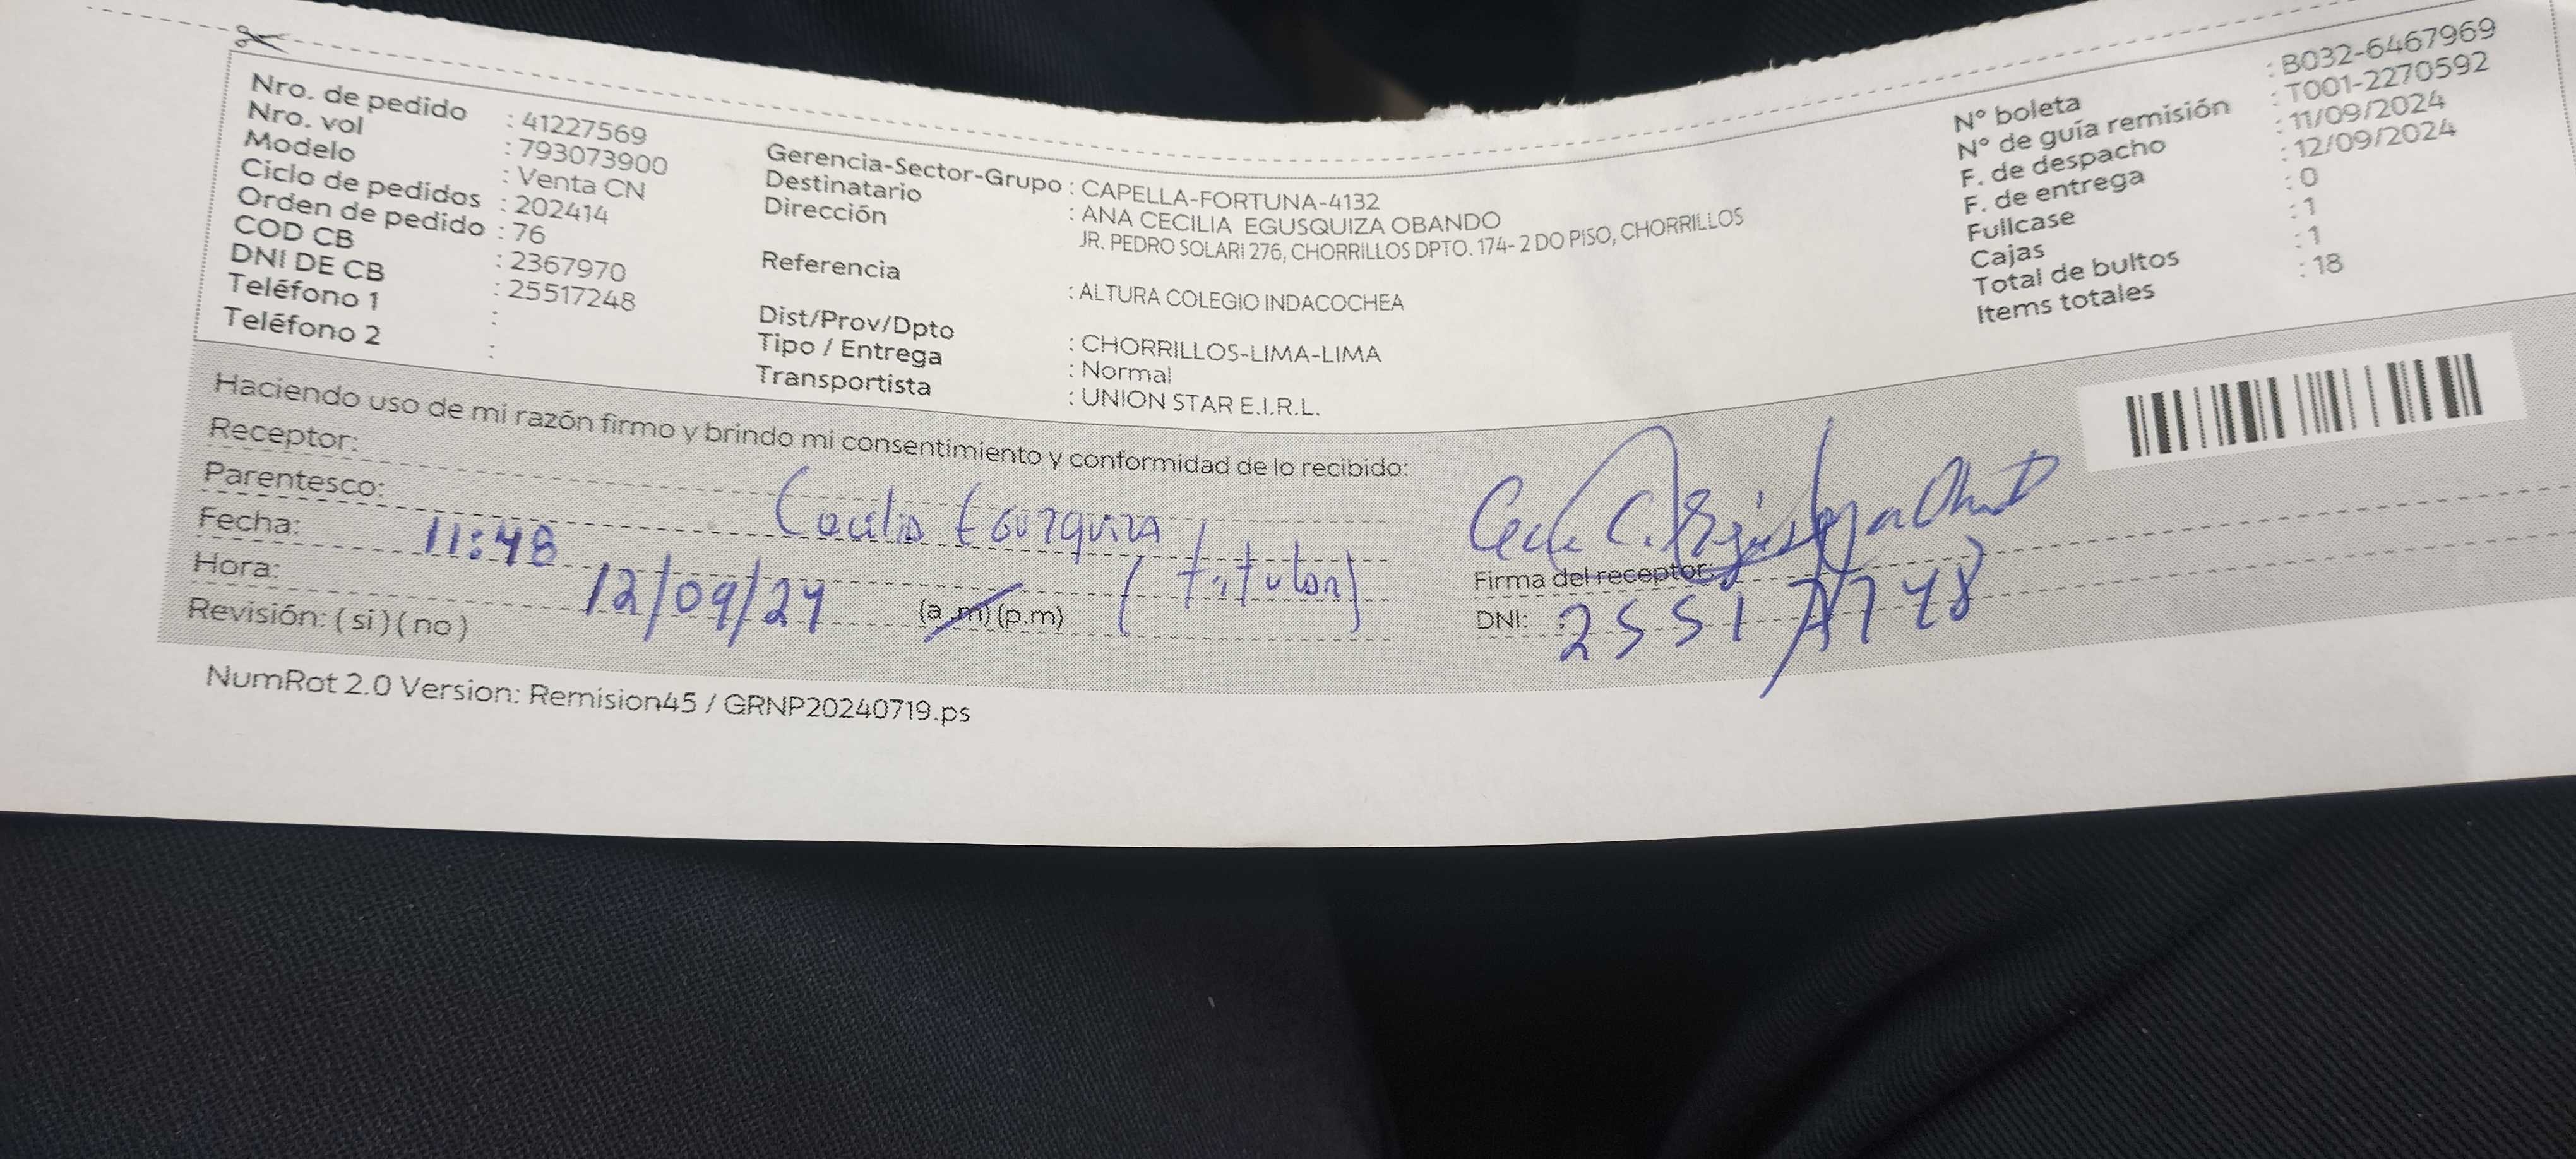 Nro. de pedido : 41227569
Nro. vol : 793073900
Modelo : Venta CN
Ciclo de pedidos : 202414
Orden de pedido : 76
COD CB : 2367970
DNI DE CB : 25517248
Teléfono 1 :
Teléfono 2 :
Gerencia-Sector-Grupo : CAPELLA-FORTUNA-4132
Destinatario : ANA CECILIA EGUSQUIZA OBANDO
Dirección JR. PEDRO SOLARI 276, CHORRILLOS DPTO. 174- 2 DO PISO, CHORRILLOS
Referencia : ALTURA COLEGIO INDACOCHEA
Dist/Prov/Dpto : CHORRILLOS-LIMA-LIMA
Tipo / Entrega : Normal
Transportista : UNION STAR E.I.R.L.
N° boleta : B032-6467969
N° de guía remisión : T001-2270592
F. de despacho : 11/09/2024
F. de entrega : 12/09/2024
Fullcase : 0
Cajas : 1
Total de bultos : 1
Items totales : 18
Haciendo uso de mi razón firmo y brindo mi consentimiento y conformidad de lo recibido:
Receptor:
Parentesco: Cecilia Egusquiza
Fecha: 11:48 (titular)
Hora: 12/09/24 (a.m)(p.m)
Revisión: ( si ) ( no )
Firma del receptor:
DNI:
NumRot 2.0 Version: Remision45 / GRNP20240719.ps